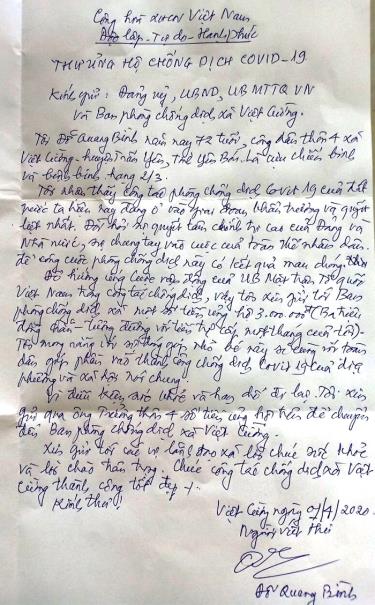 Cộng hoà XHCN Việt Nam
Độc lập - Tự do - Hạnh phúc
THƯ ỦNG HỘ CHỐNG DỊCH COVID-19
Kính gửi: Đảng uỷ, UBND, UBMTTQ VN
và Ban phòng chống dịch xã Việt Cường.
Tôi Đỗ Quang Bình năm nay 72 tuổi, công dân thôn 4 xã
Việt Cường - huyện Trấn Yên, tỉnh Yên Bái. Là cựu chiến binh
và bệnh binh hạng 2/3.
Tôi nhận thấy công tác phòng chống dịch Covid 19 của đất
nước ta hiện nay đang ở vào giai đoạn khẩn trương và quyết
liệt nhất. Đòi hỏi sự quyết tâm chính trị cao của Đảng và
Nhà nước, sự chung tay vào cuộc của toàn thể nhân dân
để công cuộc phòng chống dịch này có kết quả
Để hưởng ứng cuộc vận động của UB Mặt trận Tổ quốc
Việt Nam trong công tác chống dịch, vậy tôi xin gửi tới Ban
phòng chống dịch xã một số tiền ủng hộ 3.000.000đ (Ba triệu
đồng chẵn - tương đương với tiền trợ cấp một tháng của tôi) -
Tôi mong rằng với sự đóng góp nhỏ bé này sẽ cùng với toàn
dân góp phần vào thành công chống dịch Covid 19 của địa
phương và xã hội nói chung.
Vì điều kiện sức khoẻ và hạn chế đi lại. Tôi xin
gửi qua ông Trưởng thôn 4 số tiền ủng hộ trên để chuyển
đến Ban phòng chống dịch xã Việt Cường.
Xin gửi tới các vị lãnh đạo xã lời chúc sức khoẻ
và lời chào trân trọng. Chúc công tác chống dịch xã Việt
Cường thành công tốt đẹp -/-
Kính thư!
Việt Cường ngày 01/4/2020
Người viết thư
Đỗ Quang Bình